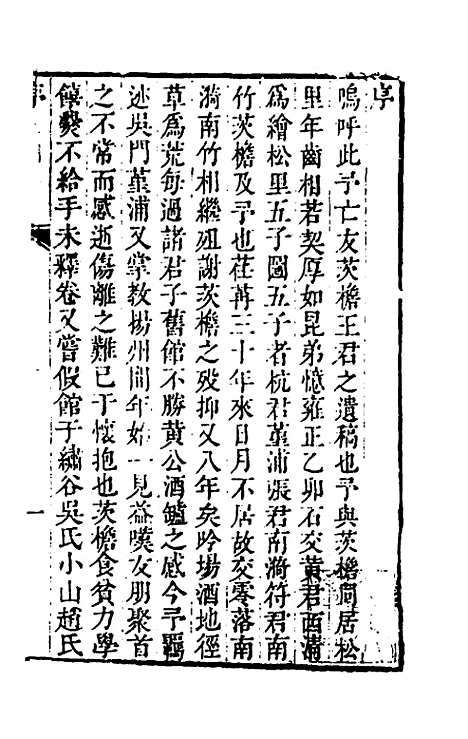 序
嗚呼此予亡友茨檐王君之遺稿也予與茨檐同居松
里年齒相若契厚如昆弟憶雍正乙卯石交黃君西清
爲繪松里五子圖五子者杭君堇浦張君南漪符君南
竹茨檐及予也荏苒三十年來日月不居故交零落南
漪南竹相繼殂謝茨檐之殁抑又八年矣吟場酒地徑
草爲荒每過諸君子舊館不勝黃公酒鑪之感今予羈
迹吳門堇浦又掌教揚州間年始一見益嘆友朋聚首
之不常而感逝傷離之難已于懷抱也茨檐食貧力學
饘爨不給手未釋卷又嘗假館于繡谷吳氏小山趙氏
序
一